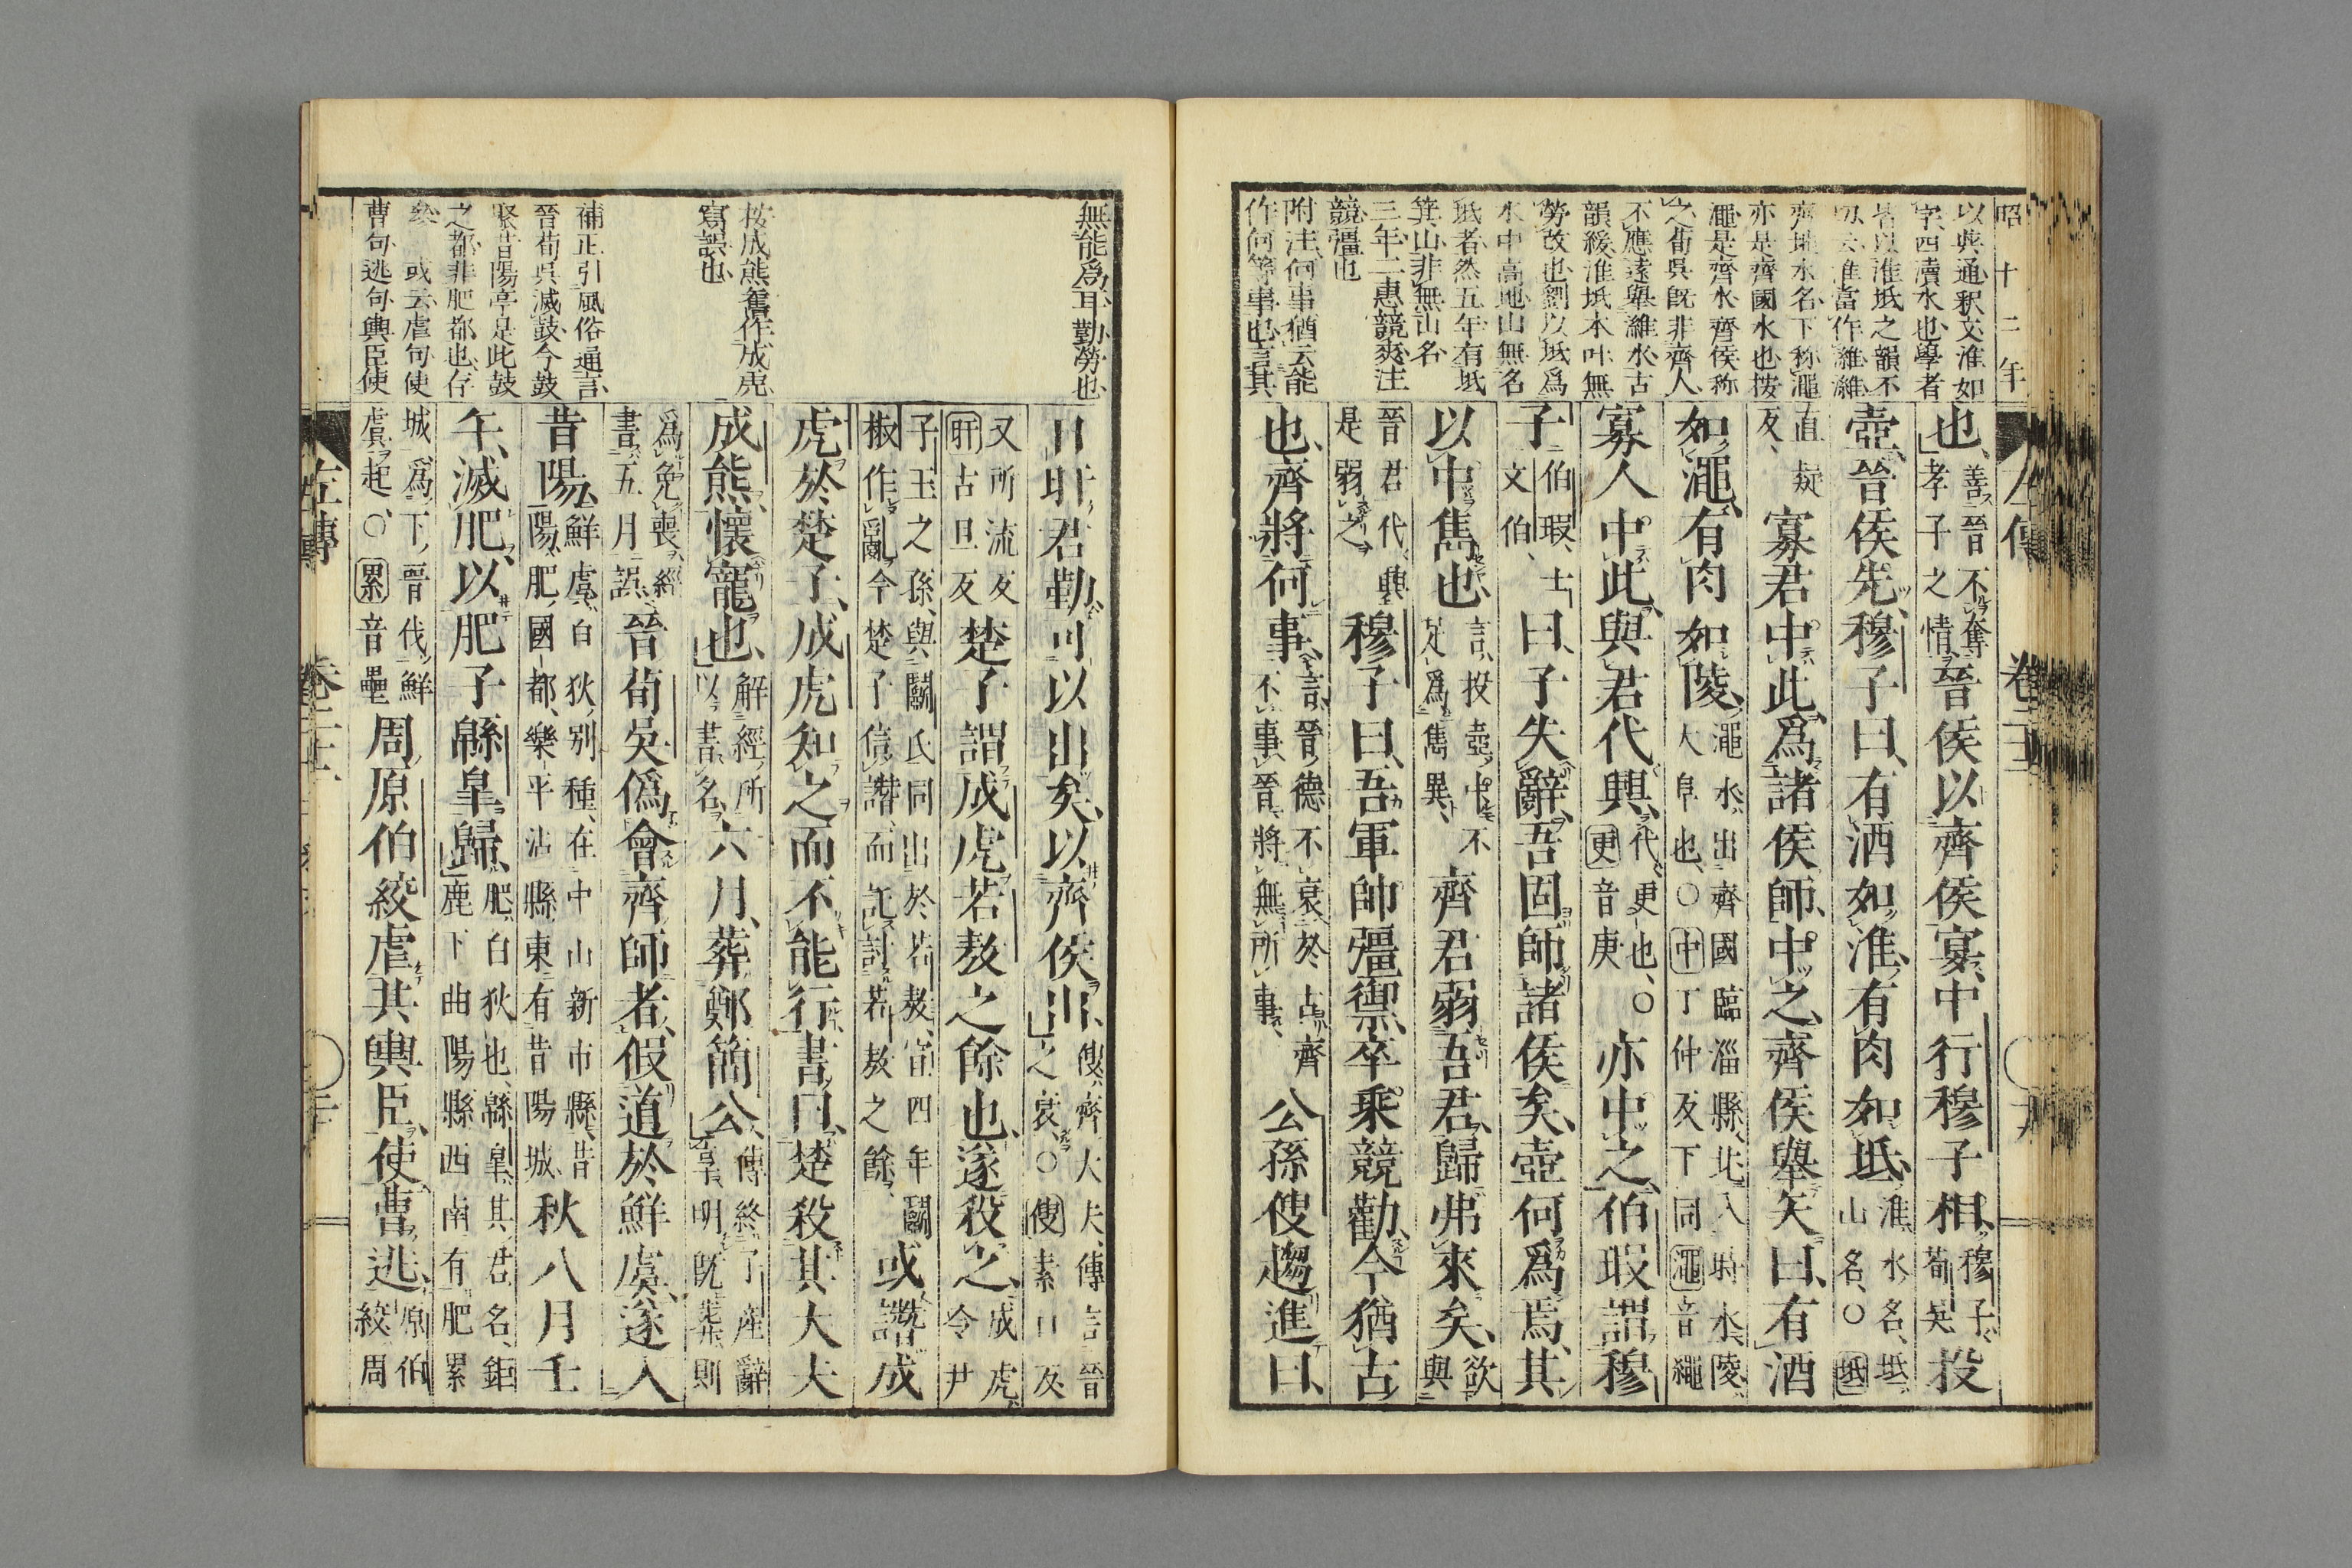 昭十二年
以典通釈文淮如
字四瀆水也學者
皆以淮坻之韻不
切云淮當作濰濰
齊地水名下称澠
亦是齊國水也按
澠是齊水齊侯称
之荀呉既非齊人
不應遠舉濰水古
韻緩淮坻本叶無
勞改也劉以坻爲
水中高地山無名
坻者然五年有坻
箕山非無山名
三年二惠競爽注
競彊也
附注何事猶云能
作何等事也言其
也、善晋不奪
孝子之情晉侯以齊侯宴、中行穆子相、穆子、
荀吳投
壺、晉侯先、穆子曰、有酒如淮、有肉如坻、淮水名、坻、
山名、○坻
直疑
反、寡君中此、爲諸侯師、中之、齊侯舉矢曰、有酒
如澠、有肉如陵、澠水、出齊國臨淄縣、北入時水、陵、
大阜也、○中丁仲反下同澠音繩
寡人中此、與君代興、代、更也、○
更音庚亦中之、伯瑕謂穆
子伯瑕、士
文伯、曰、子失辭、吾固師諸侯矣、壺何爲焉、其
以中雋也、言、投壺、中、不
足爲雋異、齊君弱吾君、歸弗來矣、欲
與
晉君代興
是弱之穆子曰、吾軍帥彊禦、卒乘競勸、今猶古
也、齊將何事、言、晉德不衰於古、齊
不事晉、將無所事、公孫傁趨進曰、
左傳 卷二十二
無能爲耳勤勞也
按成熊舊作成虎
寫誤也
補正引風俗通言
晉荀呉滅鼓今鼓
聚昔陽亭是此鼓
之都非肥都也存
叅 或云虐句使
曹句逃句輿臣使
日旰君勤、可以出矣、以齊侯出、傁、齊大夫、傳言晉
之衰、○傁素口反
又所流反
旰古旦反楚子謂成虎若敖之餘也、遂殺之、成虎、
令尹
子玉之孫、與鬭氏同出於若敖、宣四年鬭
椒作亂今楚子信譖而託討若敖之餘、或譖成
虎於楚子、成虎知之而不能行、書曰、楚殺其大夫
成熊、懷寵也、解經所
以書名、六月、葬鄭簡公、傳終子產辭
享、明既葬則
爲免喪、經
書五月誤、晉荀吳僞會齊師者、假道於鮮虞、遂入
昔陽、鮮虞、白狄別種、在中山新市縣、昔
陽、肥國都、樂平沾縣東有昔陽城、秋八月壬
午、滅肥、以肥子緜皐歸、肥、白狄也、緜皐、其君名、鉅
鹿下曲陽縣西南有肥累
城、爲下晉伐鮮
虞起、○累音壘周原伯絞虐其輿臣、使曹逃、原伯
絞周
左傳 卷二十二